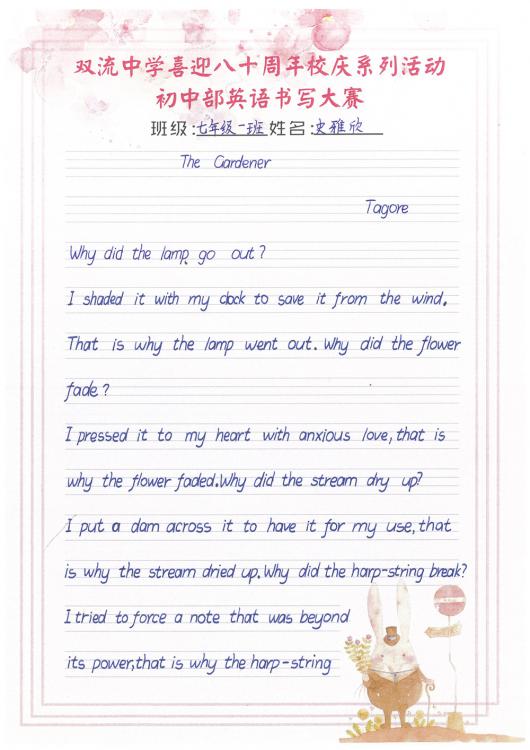 双流中学喜迎八十周年校庆系列活动
初中部英语书写大赛
班级:七年级一班 姓名:史雅欣
The Gardener
Tagore
Why did the lamp go out?
I shaded it with my clock to save it from the wind.
That is why the lamp went out. Why did the flower
fade?
I pressed it to my heart with anxious love, that is
why the flower faded. Why did the stream dry up?
I put a dam across it to have it for my use, that
is why the stream dried up. Why did the harp-string break?
I tried to force a note that was beyond
its power, that is why the harp-string